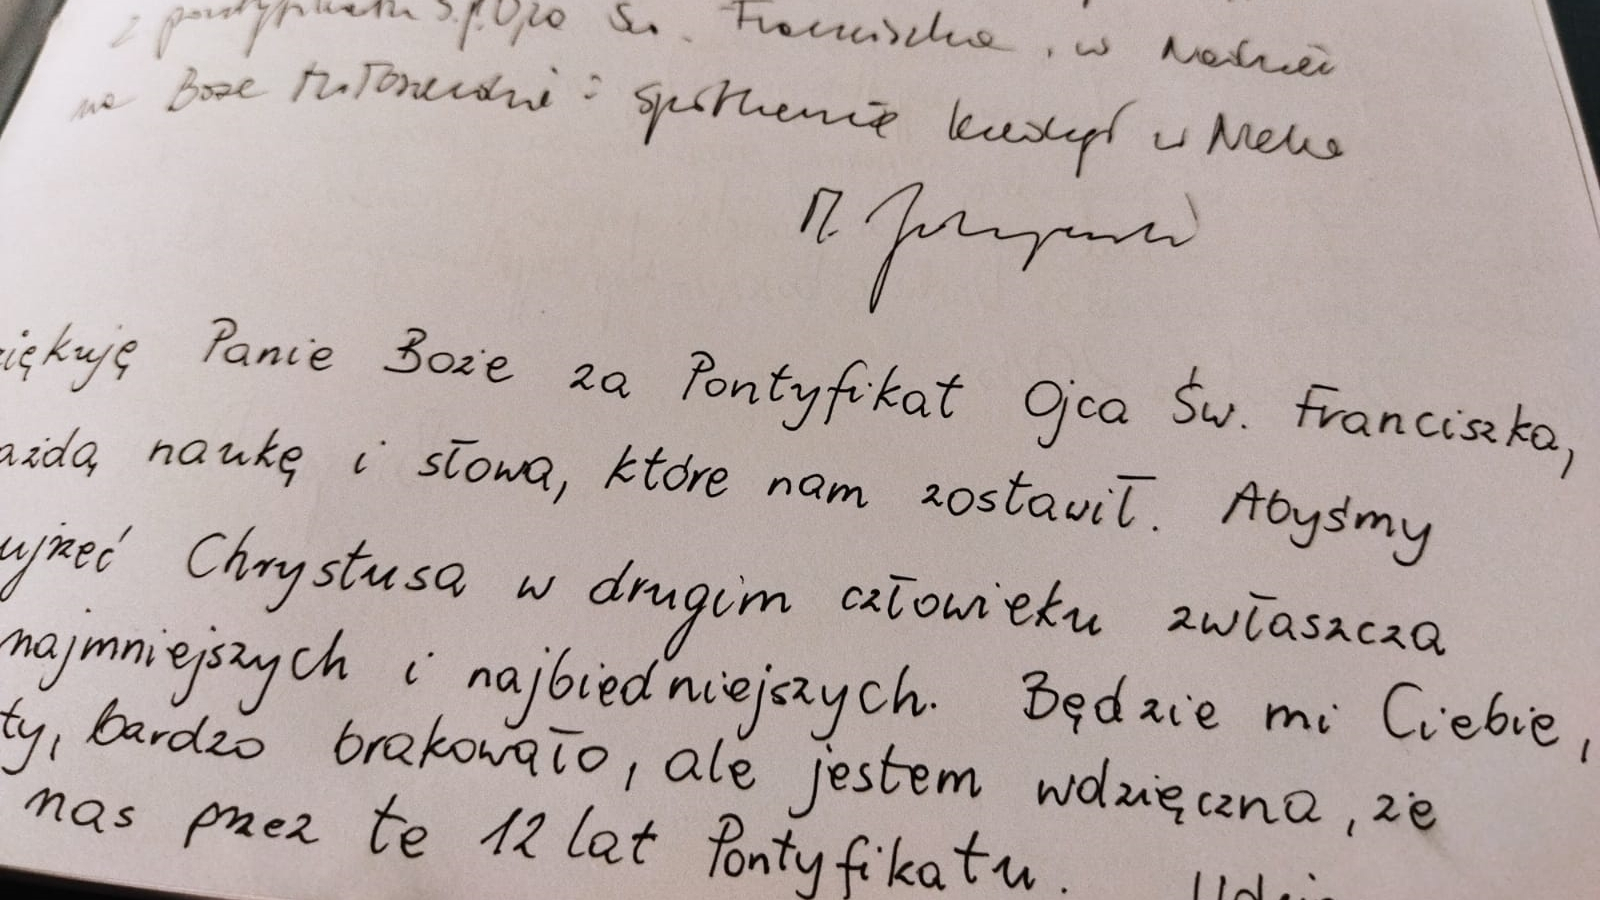 z pontyfikatu Ś.p. Ojca Św. Franciszka, w Nadziei
na Boże Miłosierdzie i spotkanie kiedyś w Niebie
M.
iękuję Panie Boże za Pontyfikat Ojca Św. Franciszka,
ażdą naukę i słowa, które nam zostawił. Abyśmy
ujrzeć Chrystusa w drugim człowieku zwłaszcza
najmniejszych i najbiedniejszych. Będzie mi Ciebie,
ty, bardzo brakowało, ale jestem wdzięczna, że
nas przez te 12 lat Pontyfikatu.